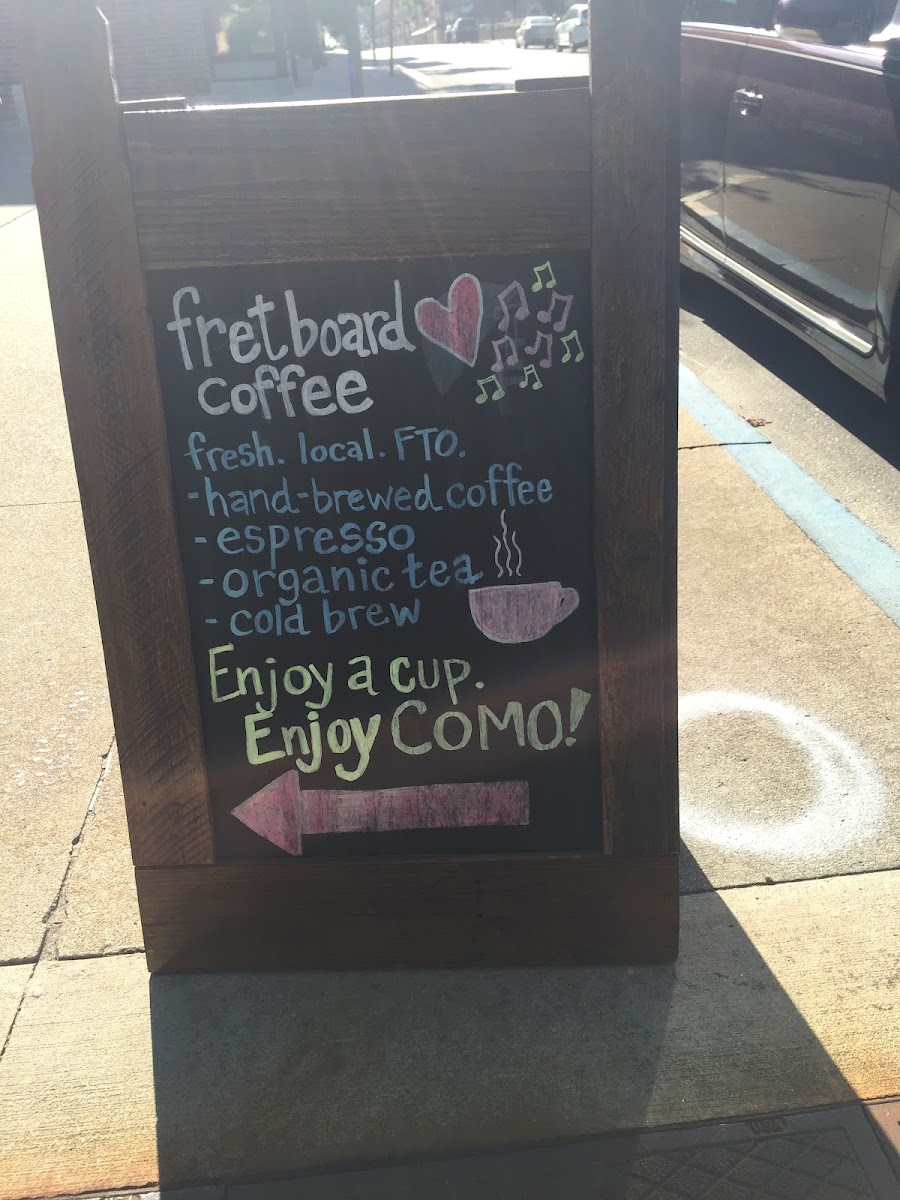 fretboard
coffee
fresh. local. FTO.
-hand-brewed coffee
-espresso
-organic tea
-cold brew
Enjoy a cup.
Enjoy COMO!
USA